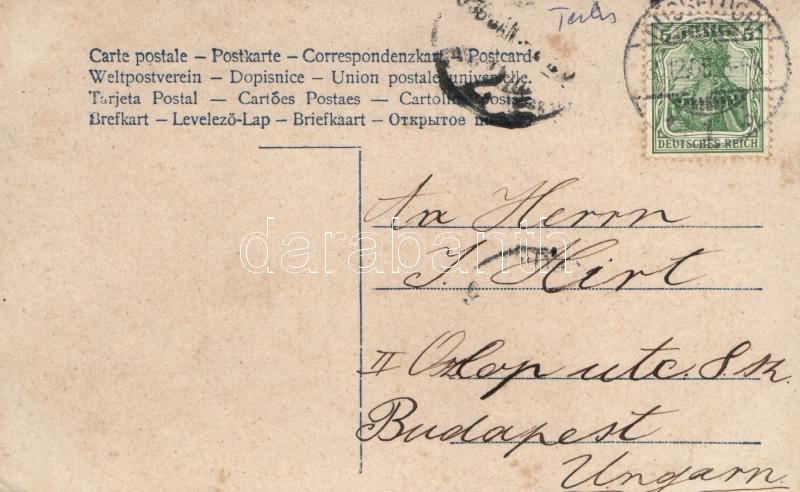 Carte postale – Postkarte – Correspondenzkarte Postcard
Weltpostverein – Dopisnice – Union postale universelle.
Tarjeta Postal – Cartões Postaes – Cartolina postale
Brefkart – Levelezö-Lap – Briefkaart – Открытое
5 5
DEUTSCHES REICH
An Herrn
J. Hirt
II Oszlop utc. 8 sz.
Budapest
Ungarn.
darabanth